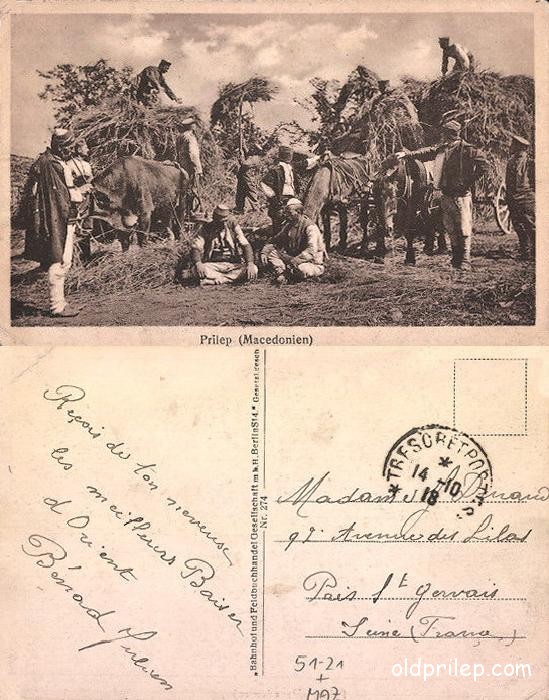 Prilep (Macedonien)
Reçois de ton
les meilleurs Baiser
d'Orient
"Bahnhof und Feldbuchhandel Gesellschaft m.b.H. Berlin S14." Gesetzl. gesch
Nr. 274
TRESOR ET POSTES
14-10
18
Madame
92 Avenue des Lilas
Près St Gervais
Seine (France)
51-21
+
MAZ
oldprilep.com